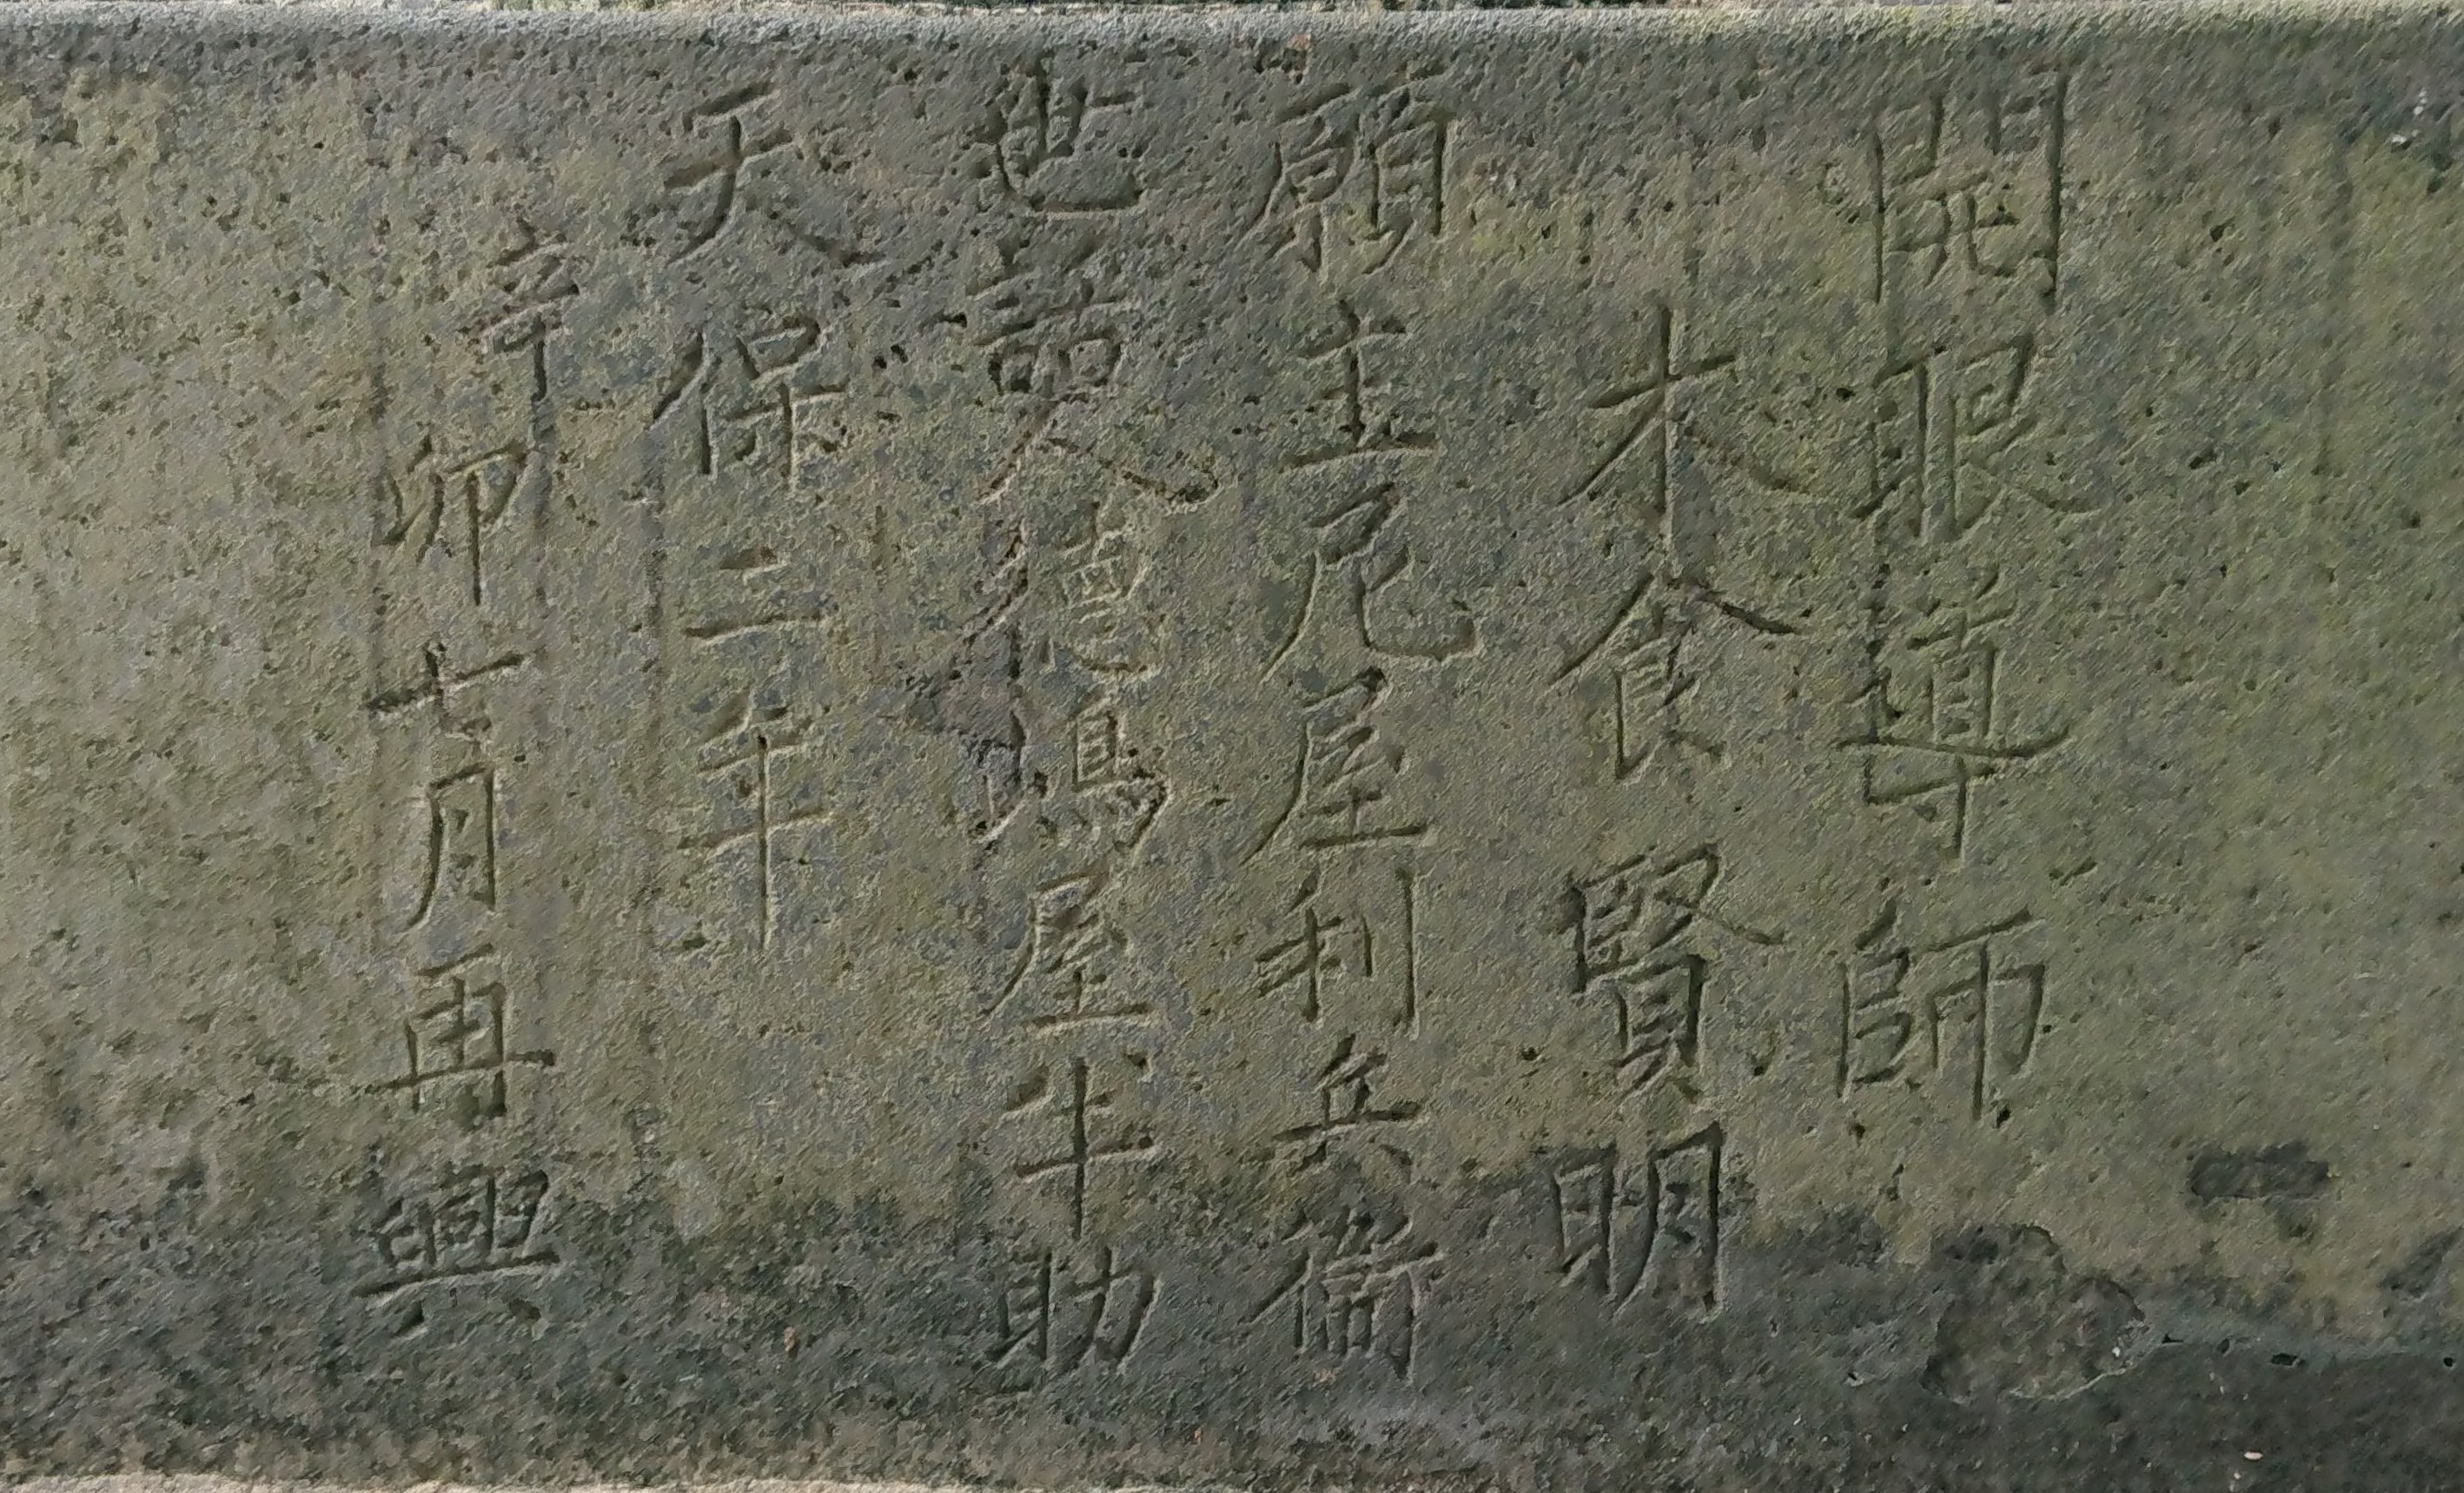 開眼導師
木食 賢明
願主尼屋利兵衛
世話人徳嶋屋半助
天保二年
辛卯七月再興